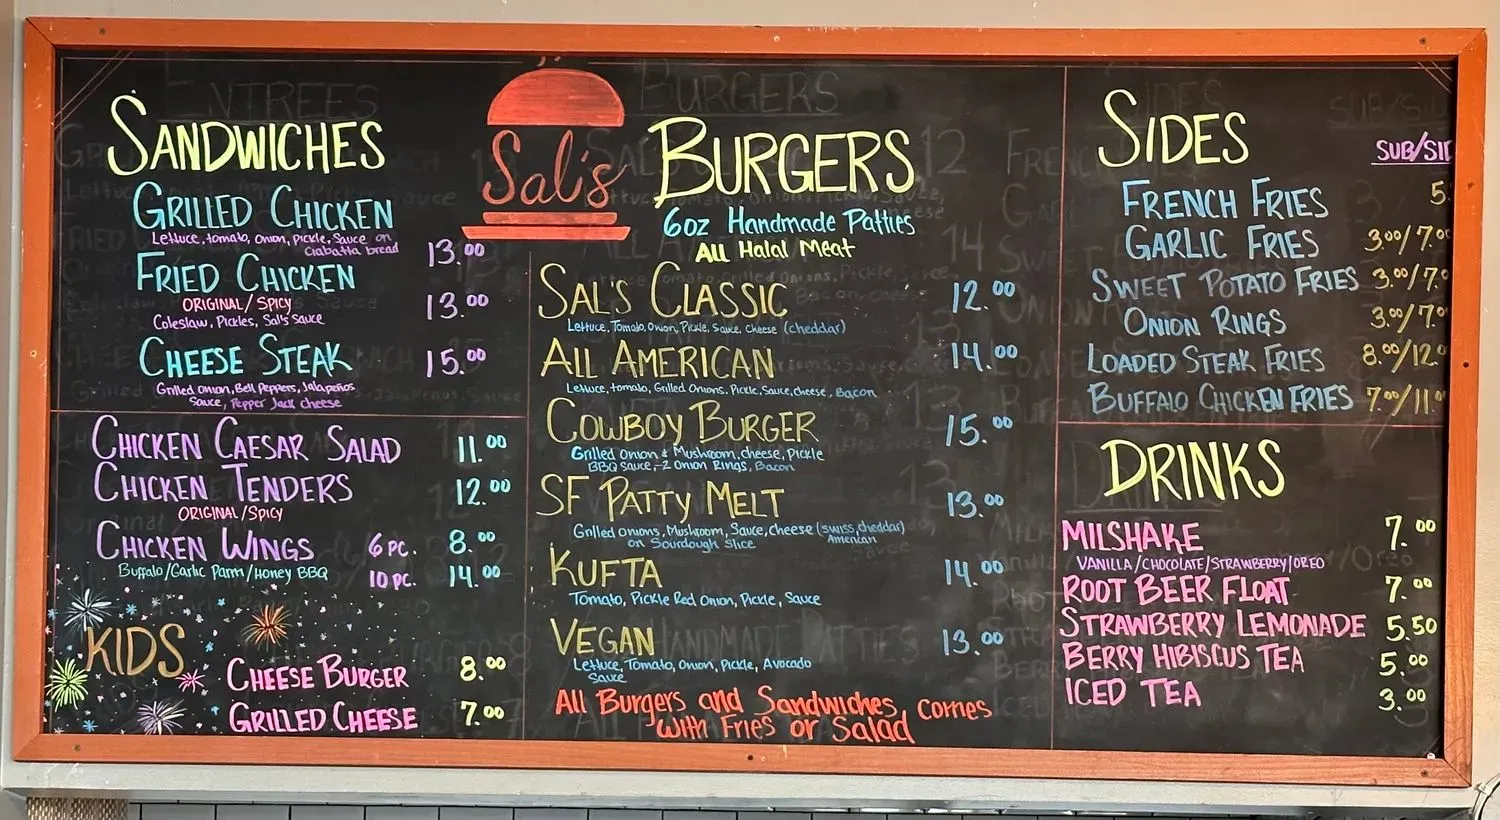 SANDWICHES
GRILLED CHICKEN
Lettuce, tomato, Onion, Pickle, Sauce on
Ciabatta bread
13.00
FRIED CHICKEN
ORIGINAL/SPICY
Coleslaw, Pickles, Sal's Sauce
13.00
CHEESE STEAK 15.00
Grilled onion, Bell Peppers, Jalapeños
Sauce, Pepper Jack cheese
CHICKEN CAESAR SALAD 11.00
CHICKEN TENDERS 12.00
ORIGINAL/SPICY
CHICKEN WINGS 6 PC. 8.00
Buffalo/Garlic Parm/Honey BBQ 10 PC. 14.00
KIDS
CHEESE BURGER 8.00
GRILLED CHEESE 7.00
Sal's
BURGERS
6oz Handmade Patties
ALL Halal Meat
SAL'S CLASSIC 12.00
Lettuce, Tomato, Onion, Pickle, Sauce, Cheese (cheddar)
ALL AMERICAN 14.00
Lettuce, tomato, Grilled Onions, Pickle, Sauce, cheese, Bacon
COWBOY BURGER 15.00
Grilled Onion & Mushroom, cheese, Pickle
BBQ Sauce,-2 Onion Rings, Bacon
SF PATTY MELT 13.00
Grilled onions, Mushroom, Sauce, cheese (swiss, cheddar)
American
on Sourdough Slice
KUFTA 14.00
Tomato, Pickle Red Onion, Pickle, Sauce
VEGAN 13.00
Lettuce, Tomato, Onion, Pickle, Avocado
Sauce
All Burgers and Sandwiches comes
with Fries or Salad
SIDES
SUB/SI
FRENCH FRIES 5.
GARLIC FRIES 3.00/7.0
SWEET POTATO FRIES 3.00/7.0
ONION RINGS 3.00/7.0
LOADED STEAK FRIES 8.00/12.0
BUFFALO CHICKEN FRIES 7.00/11.0
DRINKS
MILSHAKE 7.00
VANILLA/CHOCOLATE/STRAWBERRY/OREO
ROOT BEER FLOAT 7.00
STRAWBERRY LEMONADE 5.50
BERRY HIBISCUS TEA 5.00
ICED TEA 3.00